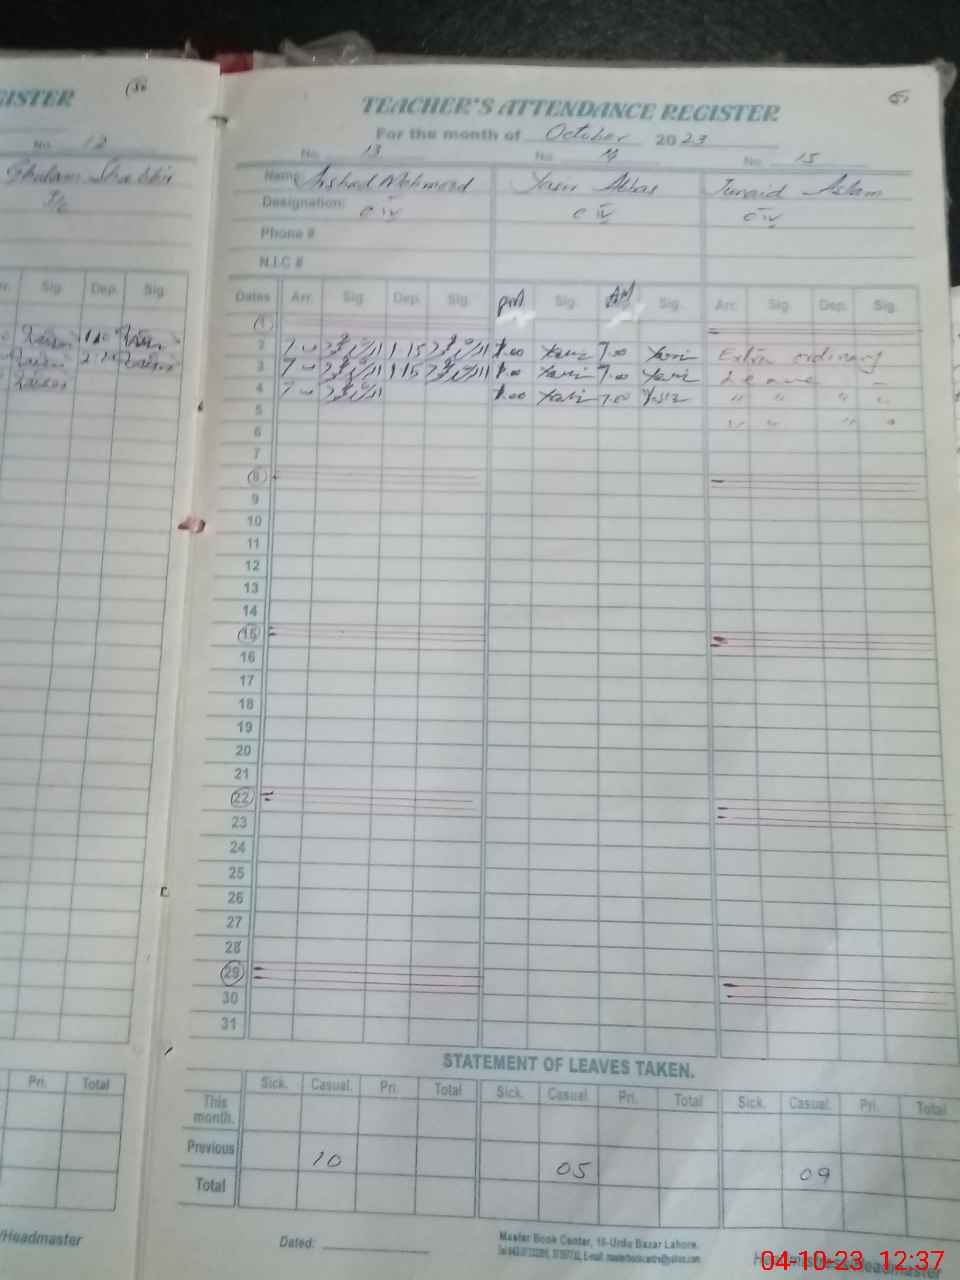 GISTER
No. 12
Ghulam Shabbir
Sig. Dep. Sig.
Pri. Total
/Headmaster
TEACHER'S ATTENDANCE REGISTER
For the month of October 2023
No. 13 No. 14 No. 15
Name Arshad Mehmood Yasir Abbas Junaid Aslam
Designation: C IV C IV C IV
Phone #
N.I.C #
Dates Arr. Sig. Dep. Sig. PM Sig. AM Sig. Arr. Sig. Dep. Sig.
1
2 7 00 1 15 1.00 Yasir 7.00 Yasir Extra ordinary
3 7 00 1 15 1.00 Yasir 7.00 Yasir Leave –
4 7 00 1.00 Yasir 7.00 Yasir " " " "
5 " " " "
6
7
8
9
10
11
12
13
14
15
16
17
18
19
20
21
22
23
24
25
26
27
28
29
30
31
STATEMENT OF LEAVES TAKEN.
Sick. Casual. Pri. Total Sick. Casual. Pri. Total Sick. Casual. Pri. Total
This month.
Previous 10 05 09
Total
Dated:
Master Book Center, 16-Urdu Bazar Lahore.
04-10-23 12:37